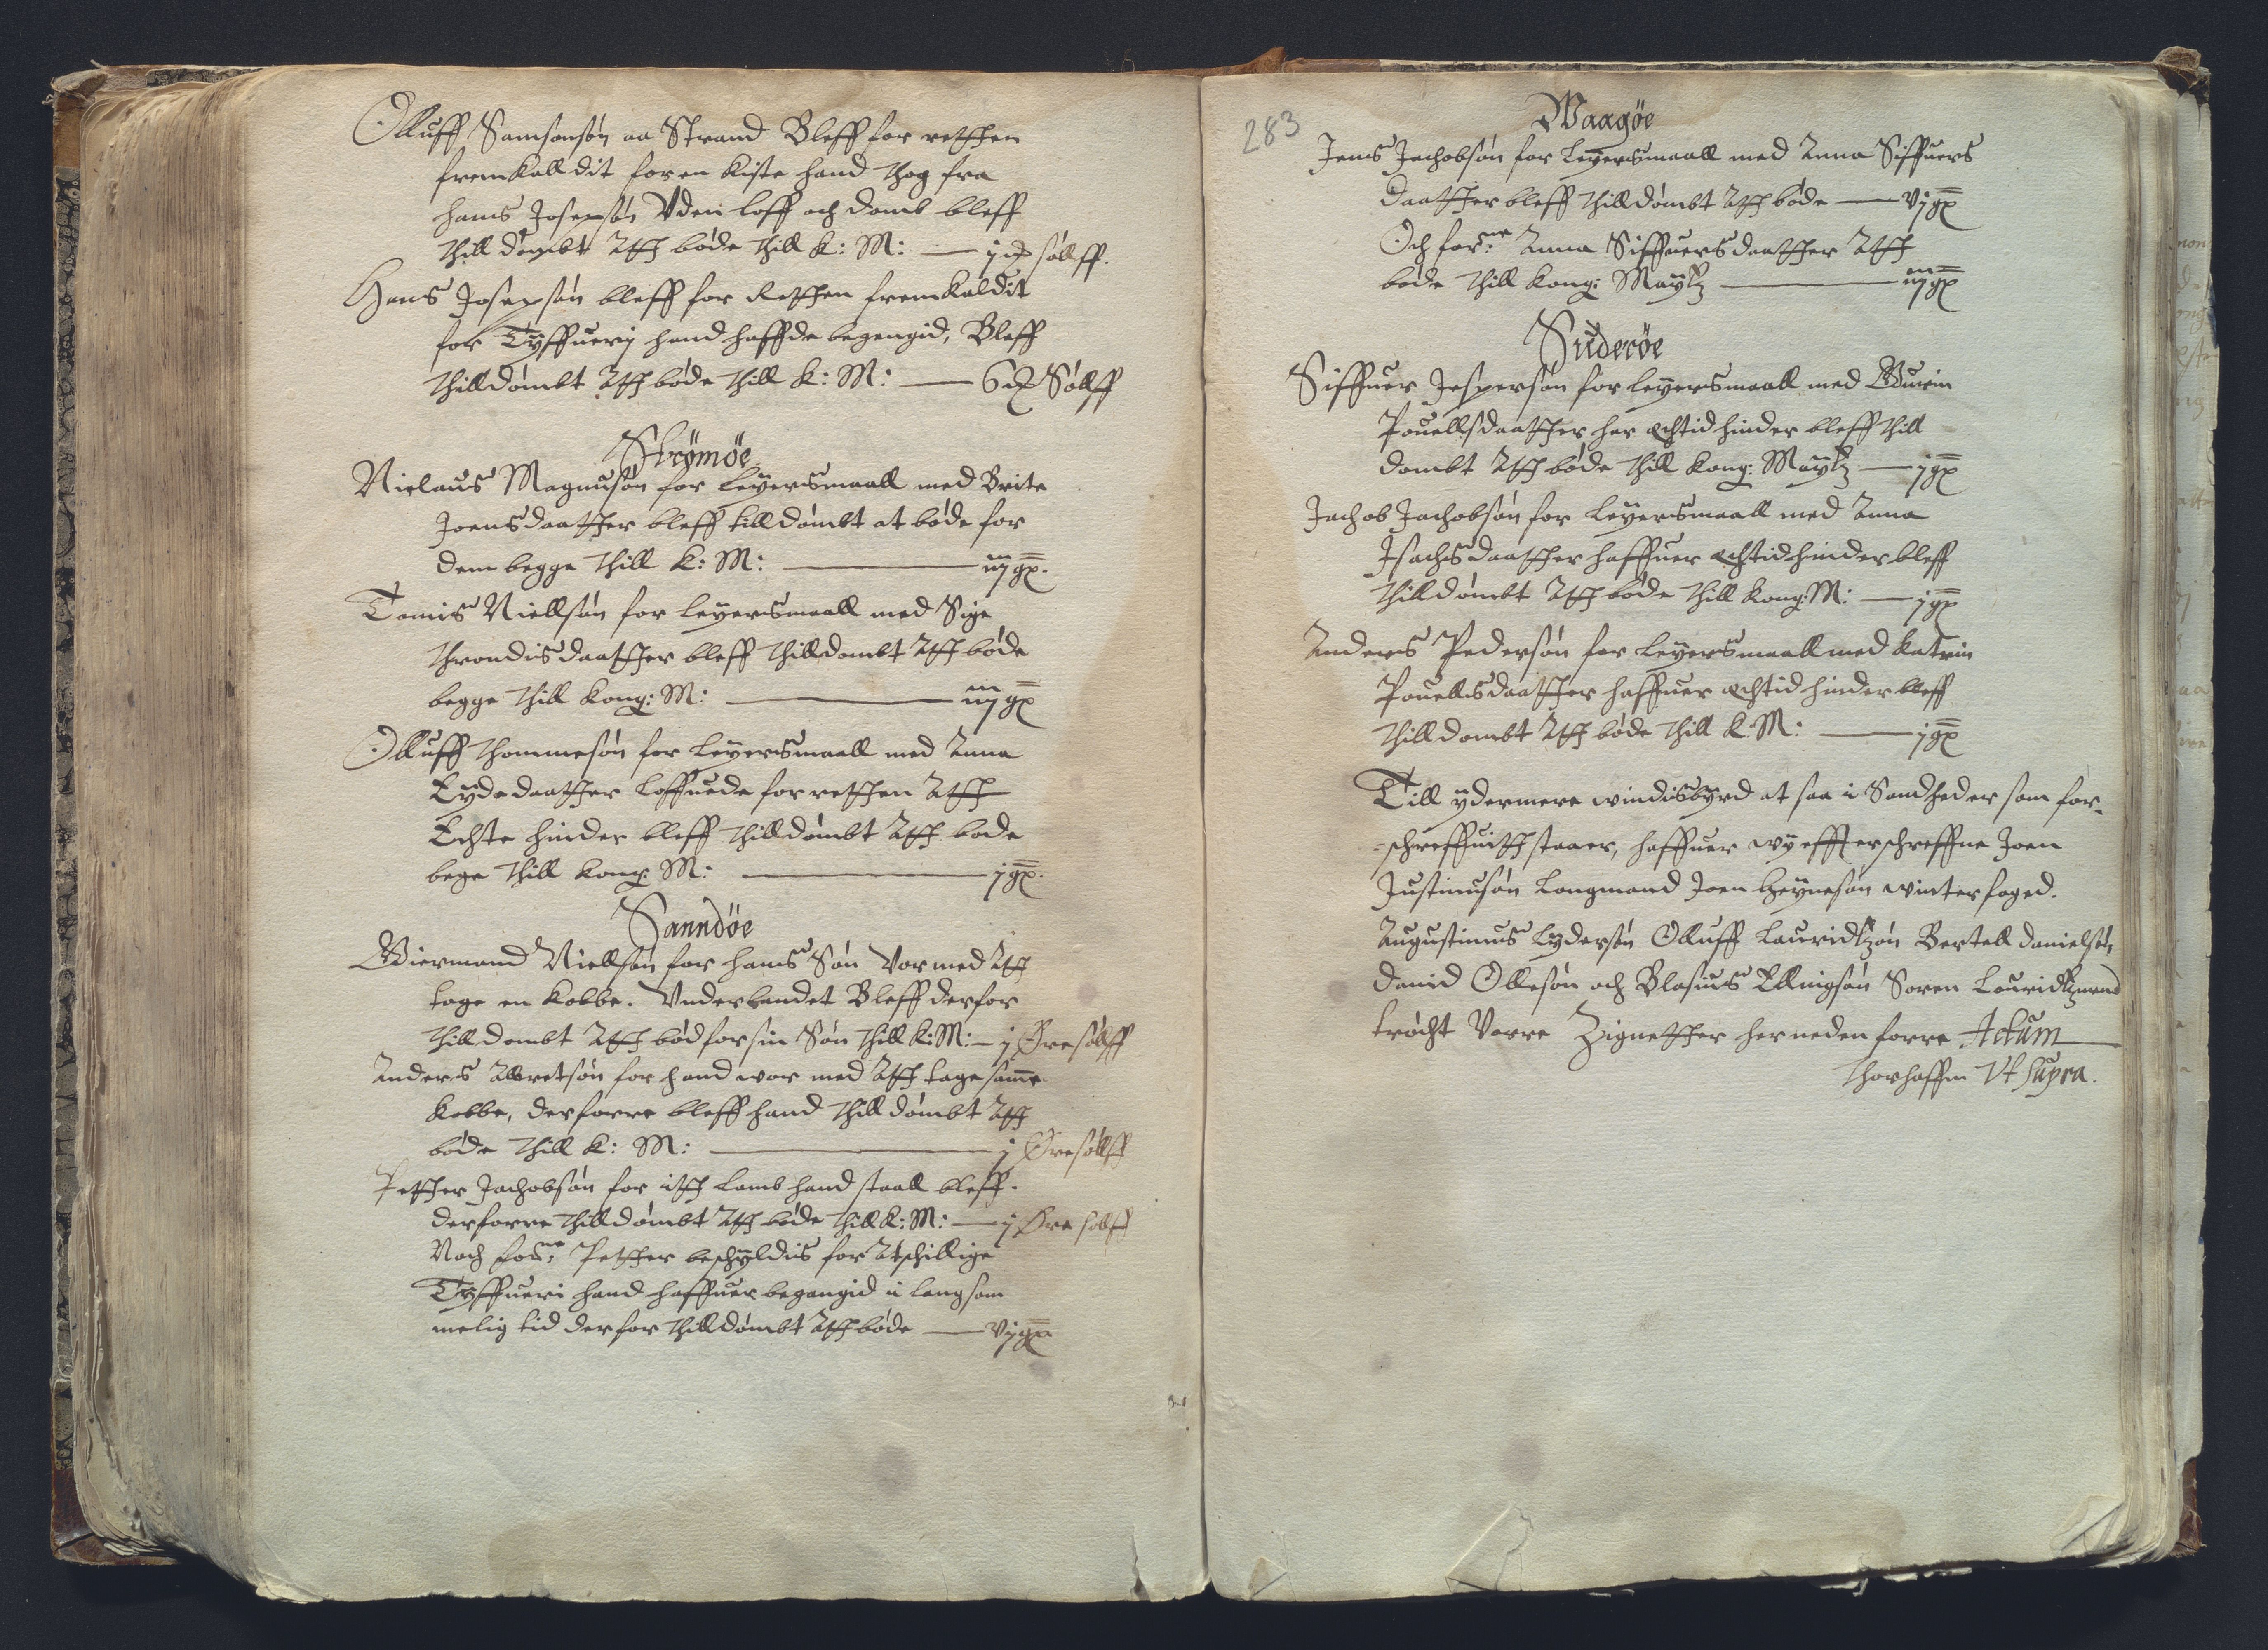 Olluff Samsonsøn aa Strand Bleff for retthen
fremkalldit for en kiste hand thog fra
hans Josepsøn Vden loff och domb bleff
thill dømbt Atth bøde thill K: M: — sølff.
Hans Josepsøn bleff for Retthen fremkaldit
for Tyffueri hand haffde begengid, Bleff
thilldømbt Atth bøde thill K: M: — Sølff
Strømøe
Nielaus Magnusøn for leyersmaall med Brite
Joensdaatther bleff tilldømbt at bøde for
dem begge thill K: M: — iiij gℓ.
Tomis Niellsøn for leyersmaall med Sige
throndisdaatther bleff thilldømbt Atth bøde
begge thill Kong: M: — iiij gℓ
Olluff Thommesøn for leyersmaall med Anna
Eydedaatther loffuede for retthen Atth
Echte hinder bleff thilldømbt Atth bøde
bege thill Kong: M: — j gℓ.
Sanndøe
Biermand Niellsøn for hans Søn Vor med Atth
tage en kobbe. Vnderlandet Bleff derfor
thilldømbt Atth bød for sin Søn thill K: M: — j Øre sølff
Anders Albretsøn for hand vor med Atth tage samme
kobbe, derforre bleff hand thilldømbt Atth
bøde thill K: M: — j Øre sølff
Petther Jachobsøn for itth lamb hand staall bleff
derforre thilldømbt Atth bøde thill K: M: — j Øre sølff
Noch forne: Petther beschyldis for Atschillige
Tyffueri hand haffuer begangid i langsom
melig tid derfor thilldømbt Atth bøde — vj gℓ
283
Waagøe
Jens Jachobsøn for leyersmaall med Anna Siffuers
daatther bleff thilldømbt Atth bøde — vj gℓ
Och forne: Anna Siffuersdaatther Atth
bøde thill Kong: Maytz — iiij gℓ
Suderøe
Siffuer Jespersøn for leyersmaall med
Pouellsdaatther har echtid hinder bleff thill
dømbt Atth bøde thill Kong: Maytz — j gℓ
Jachob Jachobsøn for leyersmaall med Anna
Isachsdaatther haffuer echtid hinder bleff
thilldømbt Atth bøde thill Kong: M: — j gℓ
Anders Pedersøn for leyersmaall med Katrin
Pouellsdaatther haffuer echtid hinder bleff
thilldømbt Atth bøde thill K: M: — j gℓ
Till ydermere windisbyrd at saa i Sandhed er som for-
=schreffuitth staaer, haffuer wy effterschreffne Joen
Justinusøn Laugmand Joen Heynesøn winterfoged.
Augustinus Lydersøn Olluff Lauridtzøn Bertell Danielsøn
Danid Ollesøn och Blasius Ellingsøn Soren Lauridtzmend
trøcht Vorre Zignetther her neden forre Actum
Thorhaffen Vt supra.